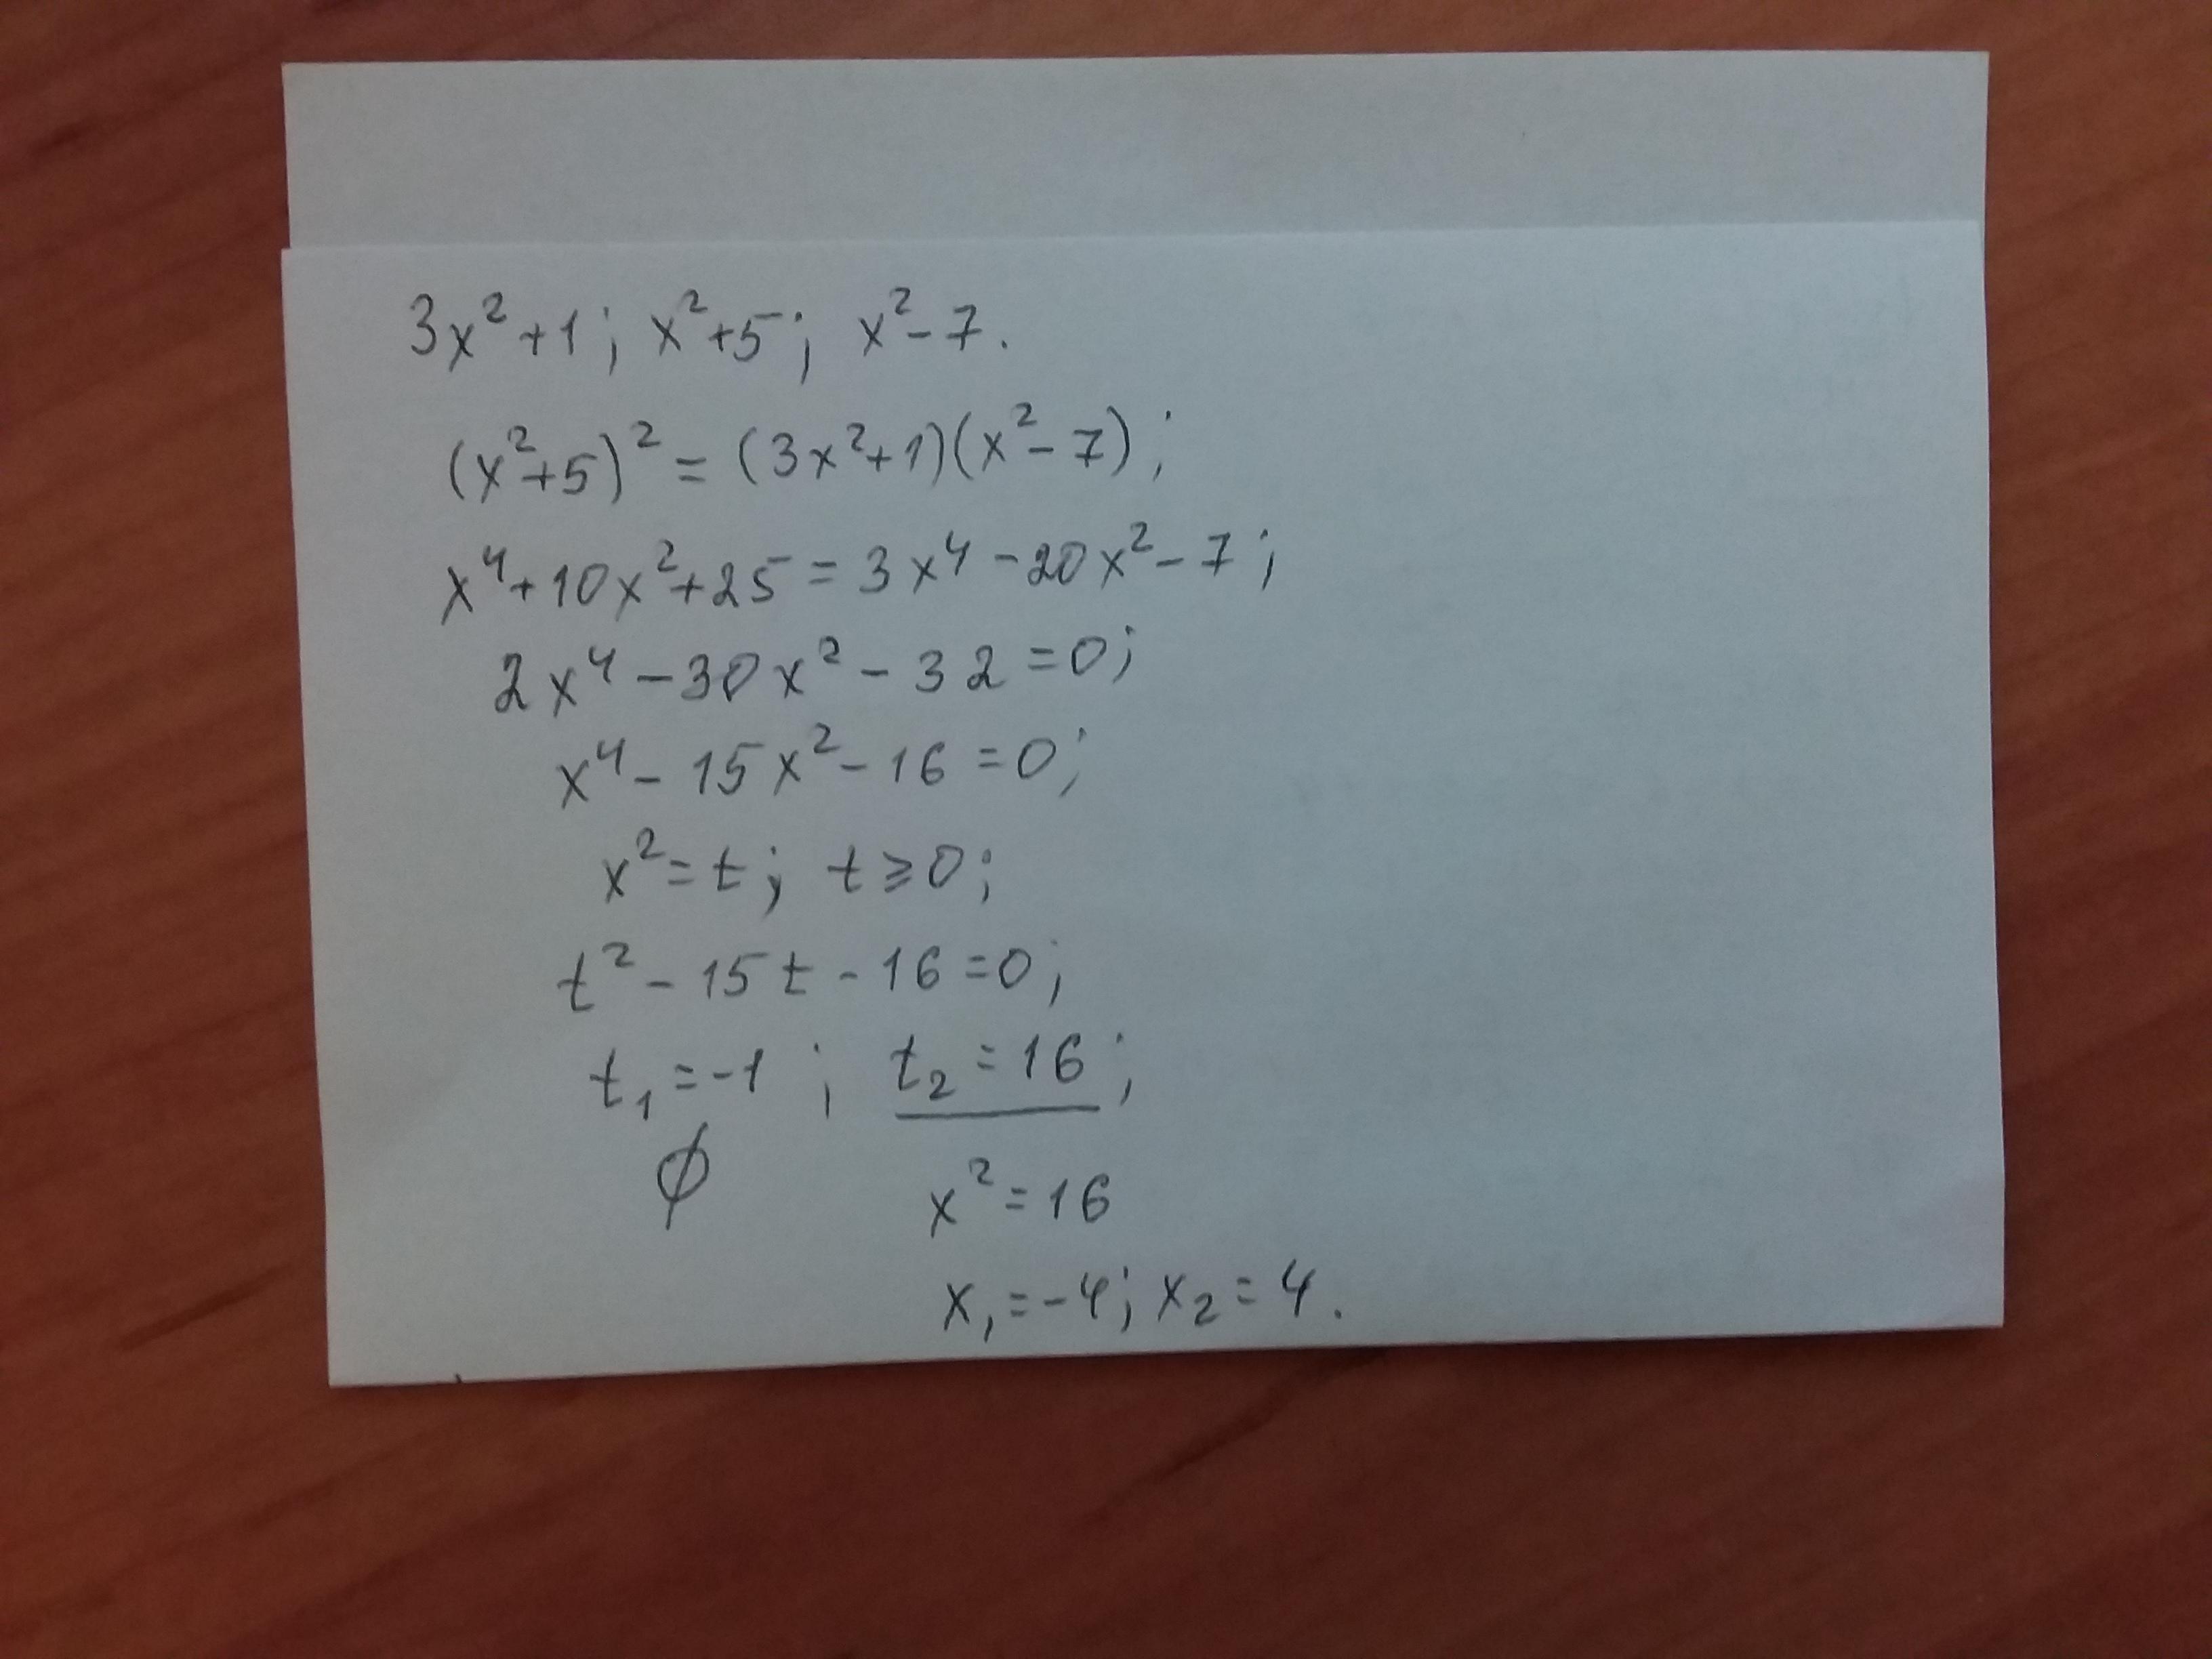 3x²+1; x²+5; x²-7.
(x²+5)² = (3x²+1)(x²-7);
x⁴+10x²+25 = 3x⁴-20x²-7;
2x⁴-30x²-32=0;
x⁴-15x²-16=0;
x²=t; t⩾0;
t²-15t-16=0;
t₁=-1; t₂=16;
∅
x²=16
x₁=-4; x₂=4.